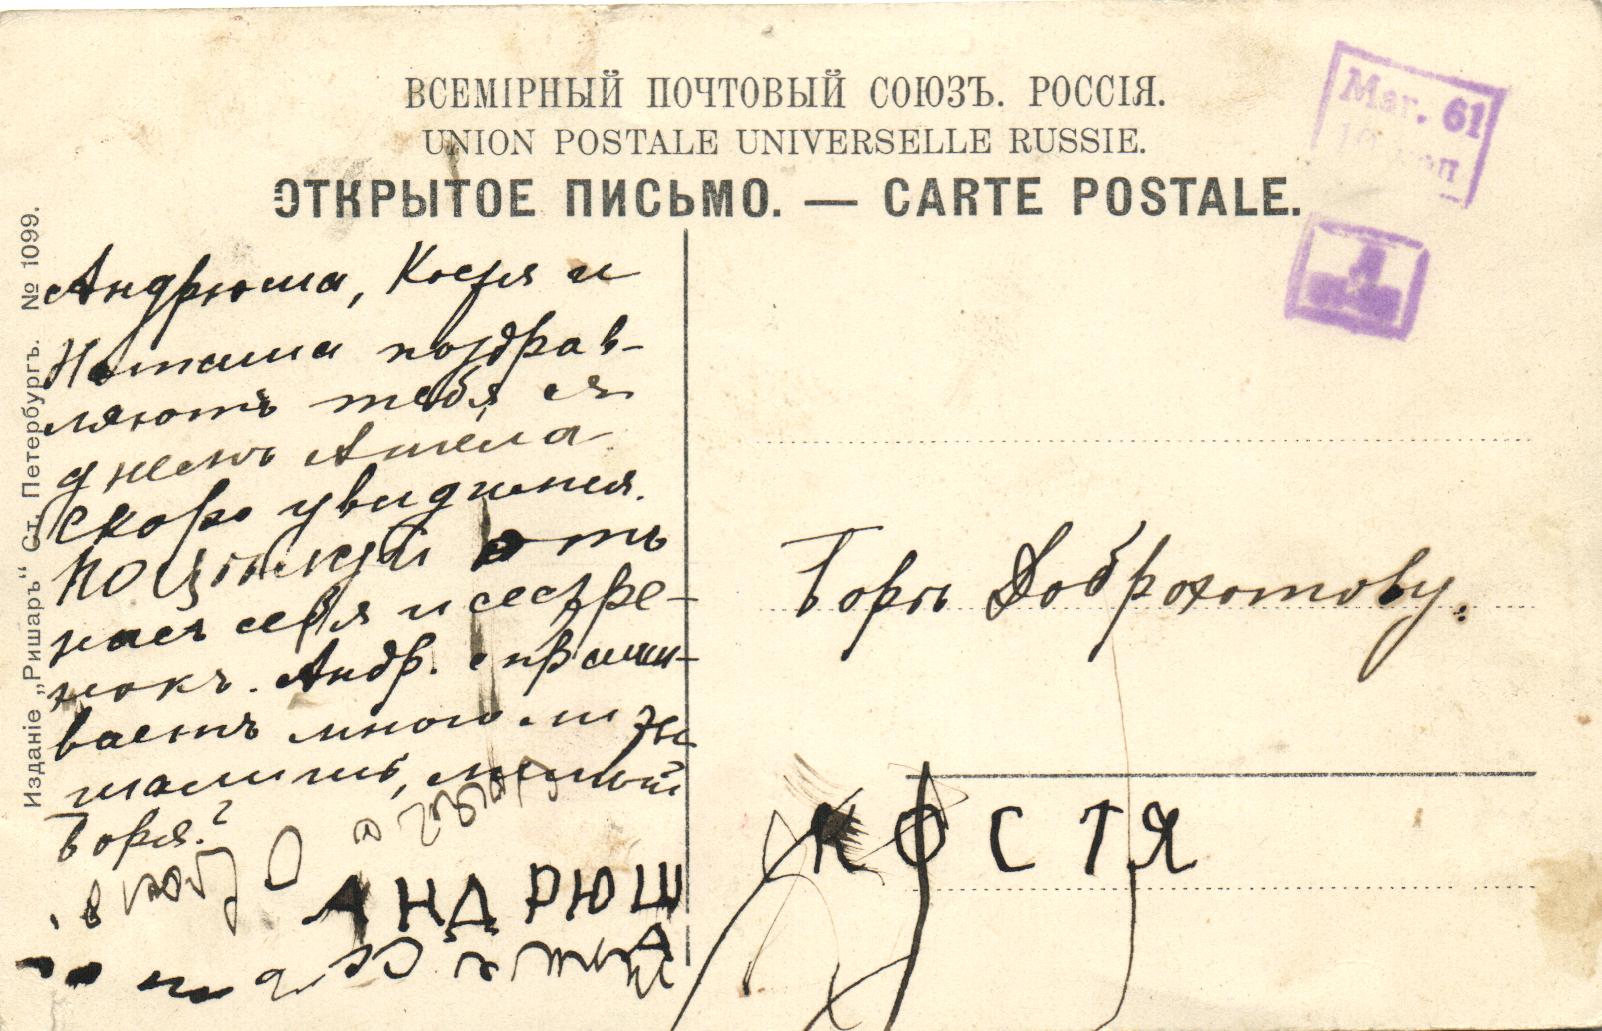 ВСЕМІРНЫЙ ПОЧТОВЫЙ СОЮЗЪ. РОССІЯ.
UNION POSTALE UNIVERSELLE RUSSIE.
ОТКРЫТОЕ ПИСЬМО. — CARTE POSTALE.
Маг. 61
10 коп
Изданіе „Ришаръ“ Ст. Петербургъ. № 1099.
Андрюша, Костя и
Наташа поздрав-
ляютъ тебя съ
днемъ Ангела
скоро увидимся.
Поцѣлуй отъ
насъ себя и сестре-
нокъ. Андр. спраши-
ваетъ много ли ты
шалишь, милый
Боря?
АНДРЮШ
А
Борѣ Доброхотову.
КОСТЯ